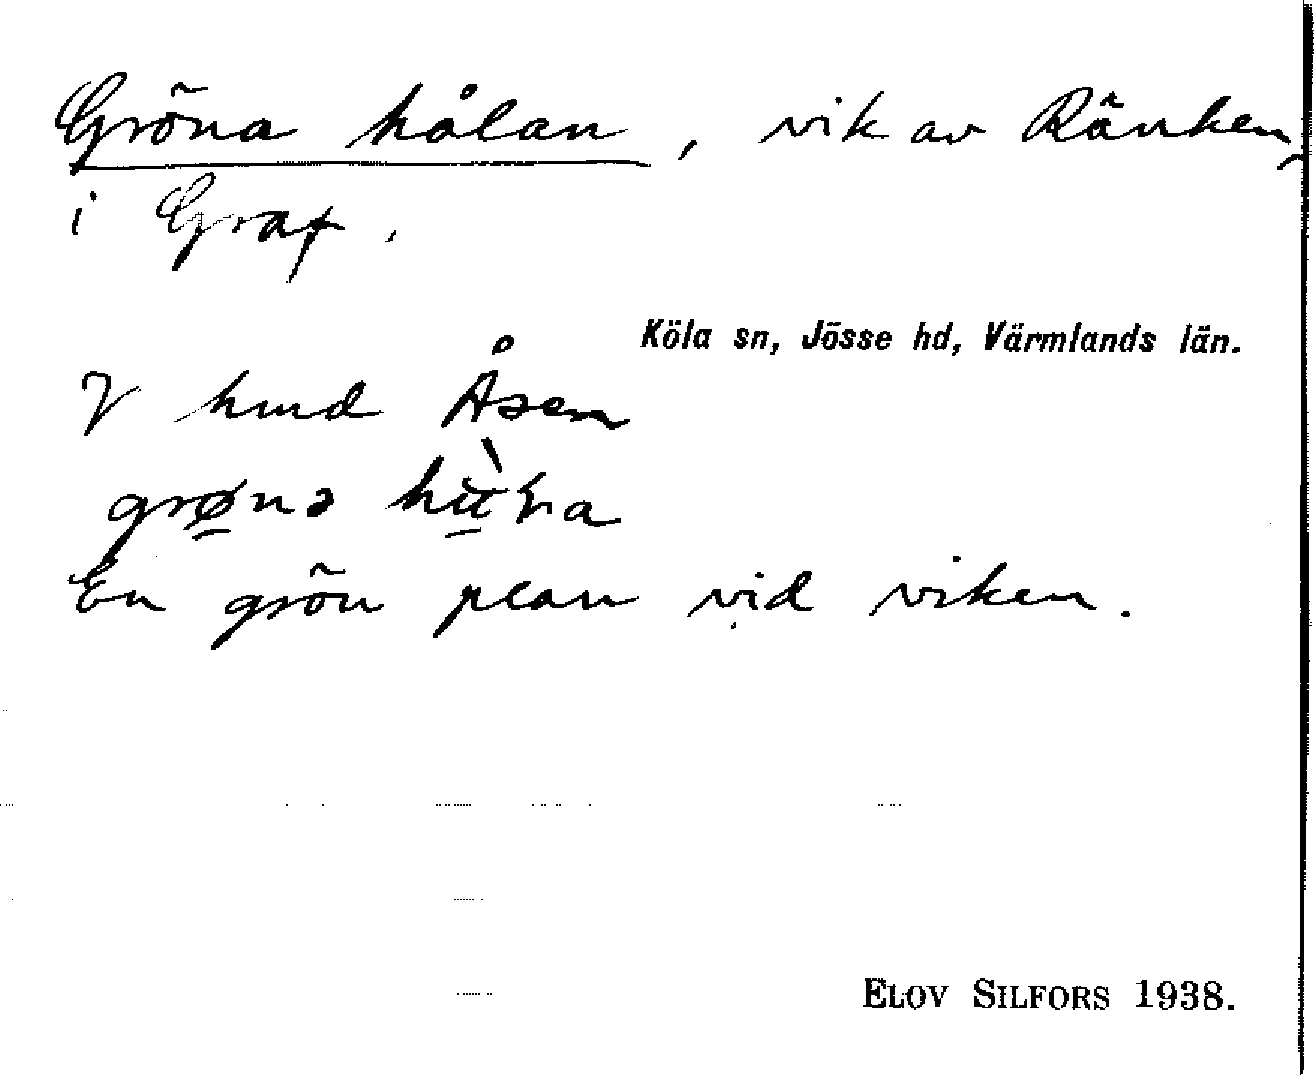 Gröna hålan, vik av Ränken,
i Graf.
Köla sn, Jösse hd, Värmlands län.
V hmd Åsen
grøna
En grön plan vid viken.
ELOV SILFORS 1938.